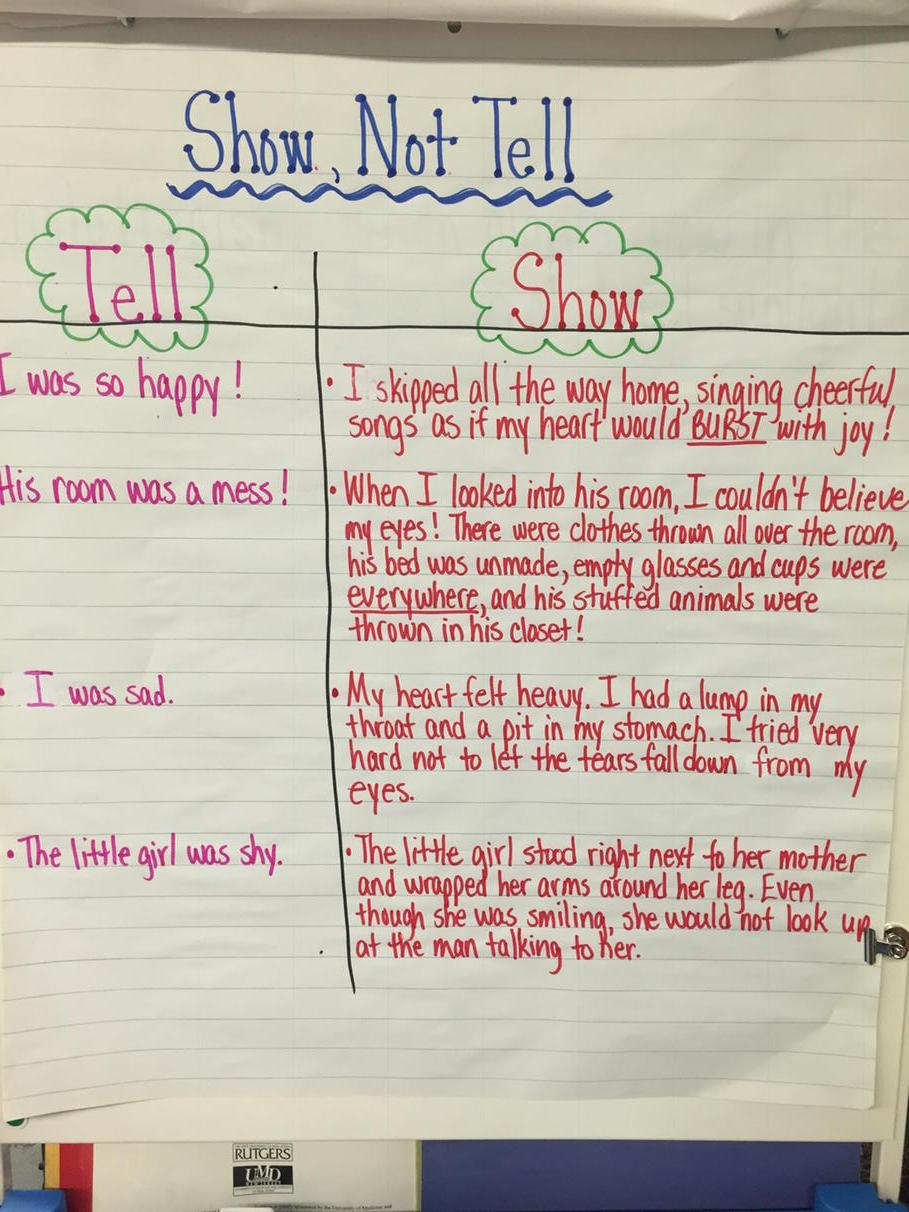 Show, Not Tell
Tell
Show
I was so happy!
• I skipped all the way home, singing cheerful
songs as if my heart would BURST with joy!
His room was a mess!
• When I looked into his room, I couldn't believe
my eyes! There were clothes thrown all over the room,
his bed was unmade, empty glasses and cups were
everywhere, and his stuffed animals were
thrown in his closet!
• I was sad.
• My heart felt heavy. I had a lump in my
throat and a pit in my stomach. I tried very
hard not to let the tears fall down from my
eyes.
• The little girl was shy.
• The little girl stood right next to her mother
and wrapped her arms around her leg. Even
though she was smiling, she would not look up
at the man talking to her.
RUTGERS
UMD